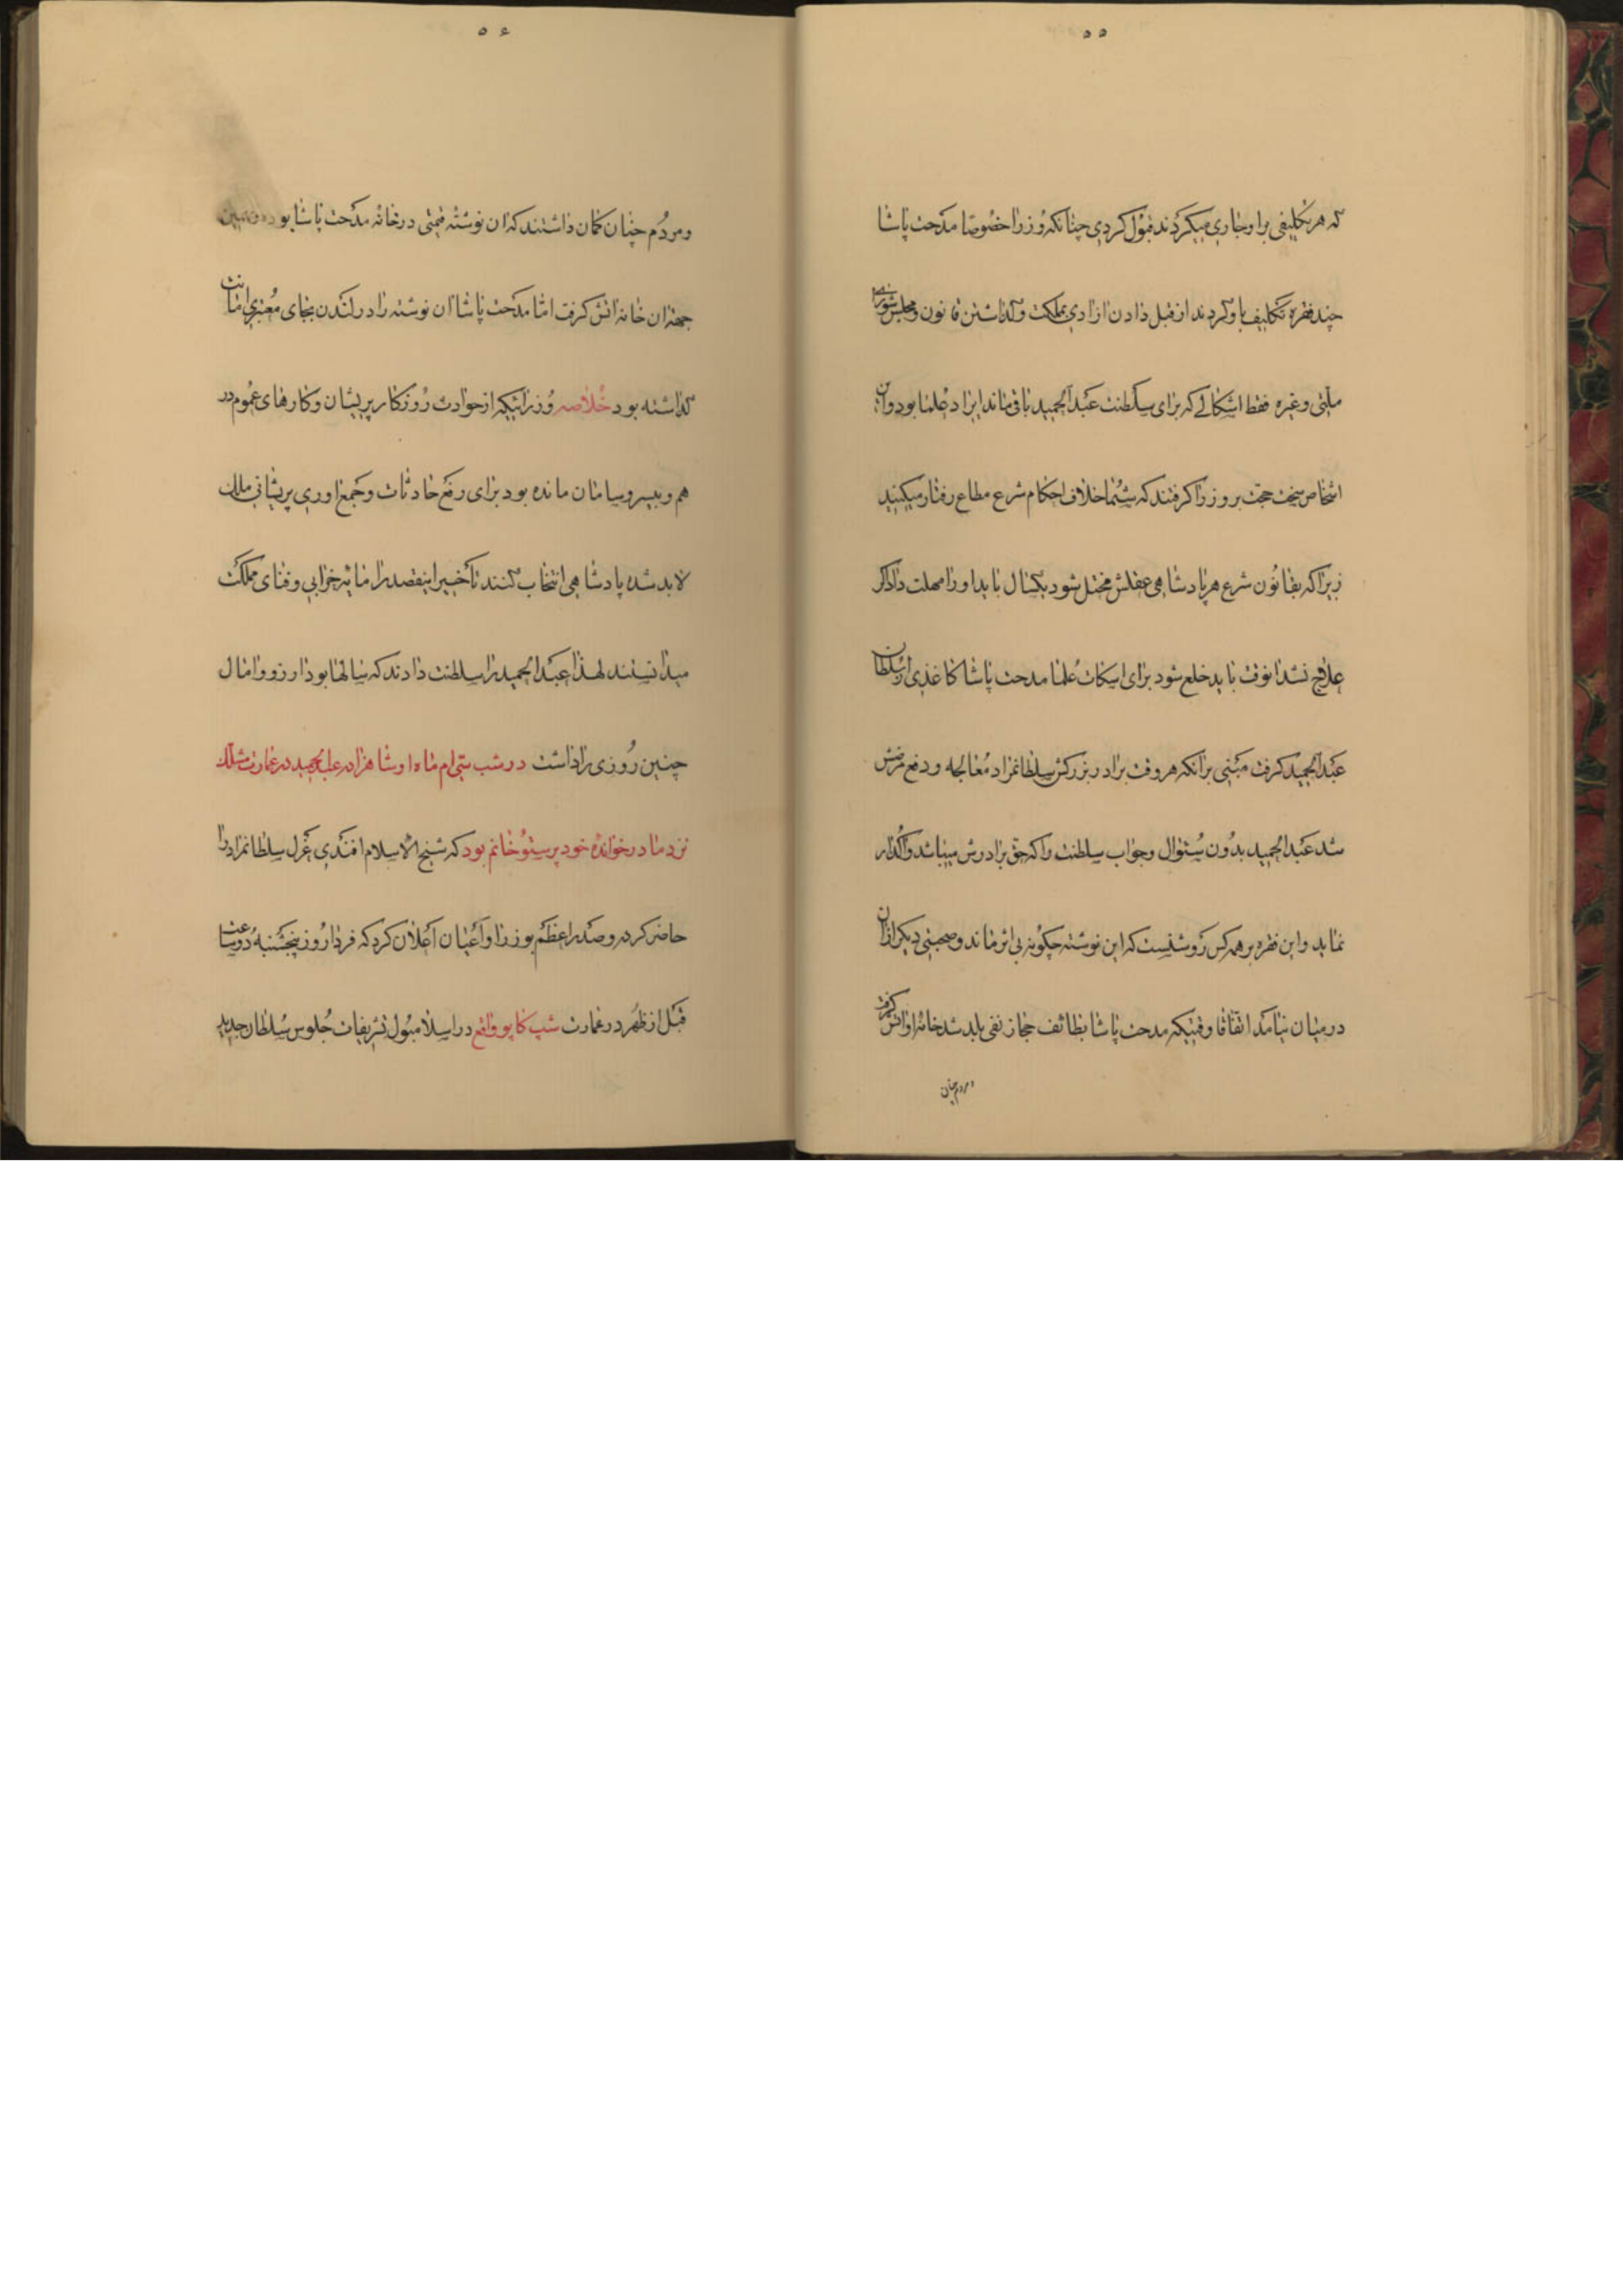 ۵۵
که هر تکلیفی براو جاری میکردند قبول کردی چنانکه وزرا خصوصا مدحت پاشا
چند فقره تکلیف باو کردند از قبل دادن ازادی مملکت و گذاشتن قانون و مجلس شورای
ملتی و غیره فقط اشکالی که برای سلطنت عبدالحمید باقی ماند ایراد علما بود و ان
اشخاص سخت حجت بر وزرا گرفتند که شما خلاف احکام شرع مطاع رفتار میکنید
زیرا که بقانون شرع هر پادشاهی عقلش مختل شود یکسال باید او را مهلت داد اگر
علاج نشد انوقت باید خلع شود برای اسکات علما مدحت پاشا کاغذی از سلطان
عبدالحمید گرفت مبنی برانکه هر وقت برادر بزرگش سلطانمراد معالجه و دفع مرضش
شد عبدالحمید بدون سئوال و جواب سلطنت را که حق برادرش میباشد واگذار
نماید و این فقره بر همه کس روشنست که این نوشته چگونه بی اثر ماند و صحبتی دیگر ازان
درمیان نیامد اتفاقا وقتیکه مدحت پاشا بطائف حجاز نفی بلد شد خانه او اتش گرفت
و مردم چنان
۵۶
و مردم چنان گمان داشتند که ان نوشته قیمتی در خانه مدحت پاشا بوده و بهمین
جهة ان خانه اتش گرفت اما مدحت پاشا ان نوشته را در لندن بجای معتبری امانت
گذاشته بود خلاصه وزرائیکه از حوادث روزگار پریشان و کارهای عموم در
هم و بیسروسامان مانده بود برای رفع حادثات و جمع اوری پریشانی ملک
لابد شده پادشاهی انتخاب کنند تأخیر اینقصد را مایه خرابی و فنای مملکت
میدانستند لهذا عبدالحمید را سلطنت دادند که سالها بود ارزو و امال
چنین روزی را داشت در شب سی ام ماه اوشاهزاده عبدالحمید در عمارت مشلک
نزد مادر خوانده خود پرستو خانم بود که شیخ الاسلام افندی عزل سلطانمراد را
حاضر کرده و صدراعظم بوزرا و اعیان اعلان کرد که فردا روز پنجشنبه دو ساعت
قبل از ظهر در عمارت شپ کاپو واقع در اسلامبول تشریفات جلوس سلطان جدید